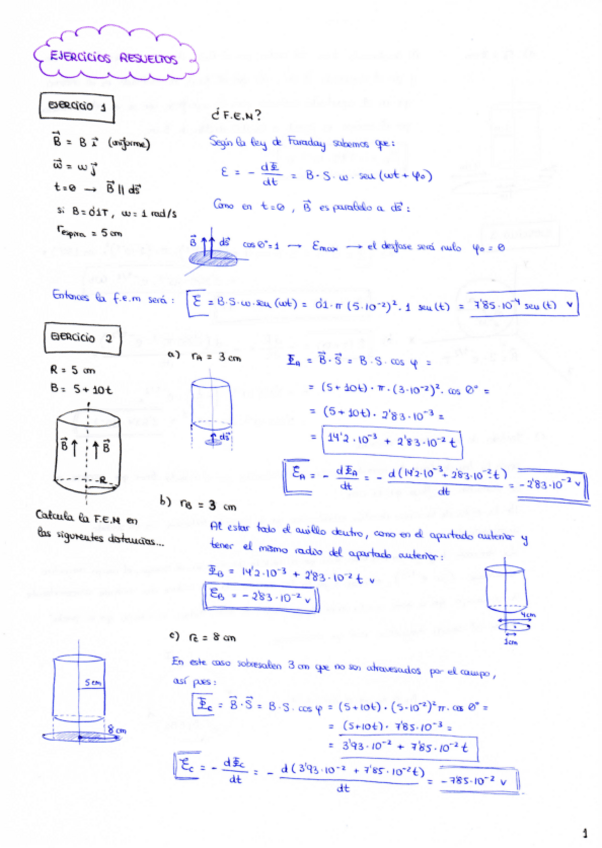 EJERCICIOS RESUELTOS
EJERCICIO 1
¿F.E.M?
B⃗ = B i⃗ (uniforme)
ω⃗ = ω j⃗
t=0 → B⃗ ∥ ds⃗
si B=0'1T, ω=1 rad/s
r espira = 5 cm
Según la ley de Faraday sabemos que:
ε = - dΦ/dt = B·S·ω·seu (ωt + φ₀)
Como en t=0, B⃗ es paralelo a ds⃗:
B⃗ ds⃗ cos 0º=1 → εmax → el desfase será nulo φ₀ = 0
Entonces la f.e.m será: ε = B·S·ω·seu (ωt) = 0'1·π (5·10⁻²)²·1 seu (t) = 7'85·10⁻⁴ seu (t) v
EJERCICIO 2
R = 5 cm
B = 5+10t
B⃗ B⃗
R
Calcula la F.E.M en
las siguientes distancias...
a) rA = 3 cm
ds⃗
ΦA = B⃗·S⃗ = B·S·cos φ =
= (5+10t)·π·(3·10⁻²)²·cos 0º =
= (5+10t)·2'83·10⁻³ =
= 14'2·10⁻³ + 2'83·10⁻² t
εA = - dΦA/dt = - d(14'2·10⁻³+2'83·10⁻²t)/dt = -2'83·10⁻² v
b) rB = 3 cm
Al estar todo el anillo dentro, como en el apartado anterior y
tener el mismo radio del apartado anterior:
ΦB = 14'2·10⁻³ + 2'83·10⁻² t v
εB = -2'83·10⁻² v
4cm
1cm
c) rc = 8 cm
En este caso sobresalen 3 cm que no son atravesados por el campo,
así pues:
5cm
8 cm
Φc = B⃗·S⃗ = B·S·cos φ = (5+10t)·(5·10⁻²)²π·cos 0º =
= (5+10t)·7'85·10⁻³ =
= 3'93·10⁻² + 7'85·10⁻² t
εc = - dΦc/dt = - d(3'93·10⁻² + 7'85·10⁻²t)/dt = -7'85·10⁻² v
1